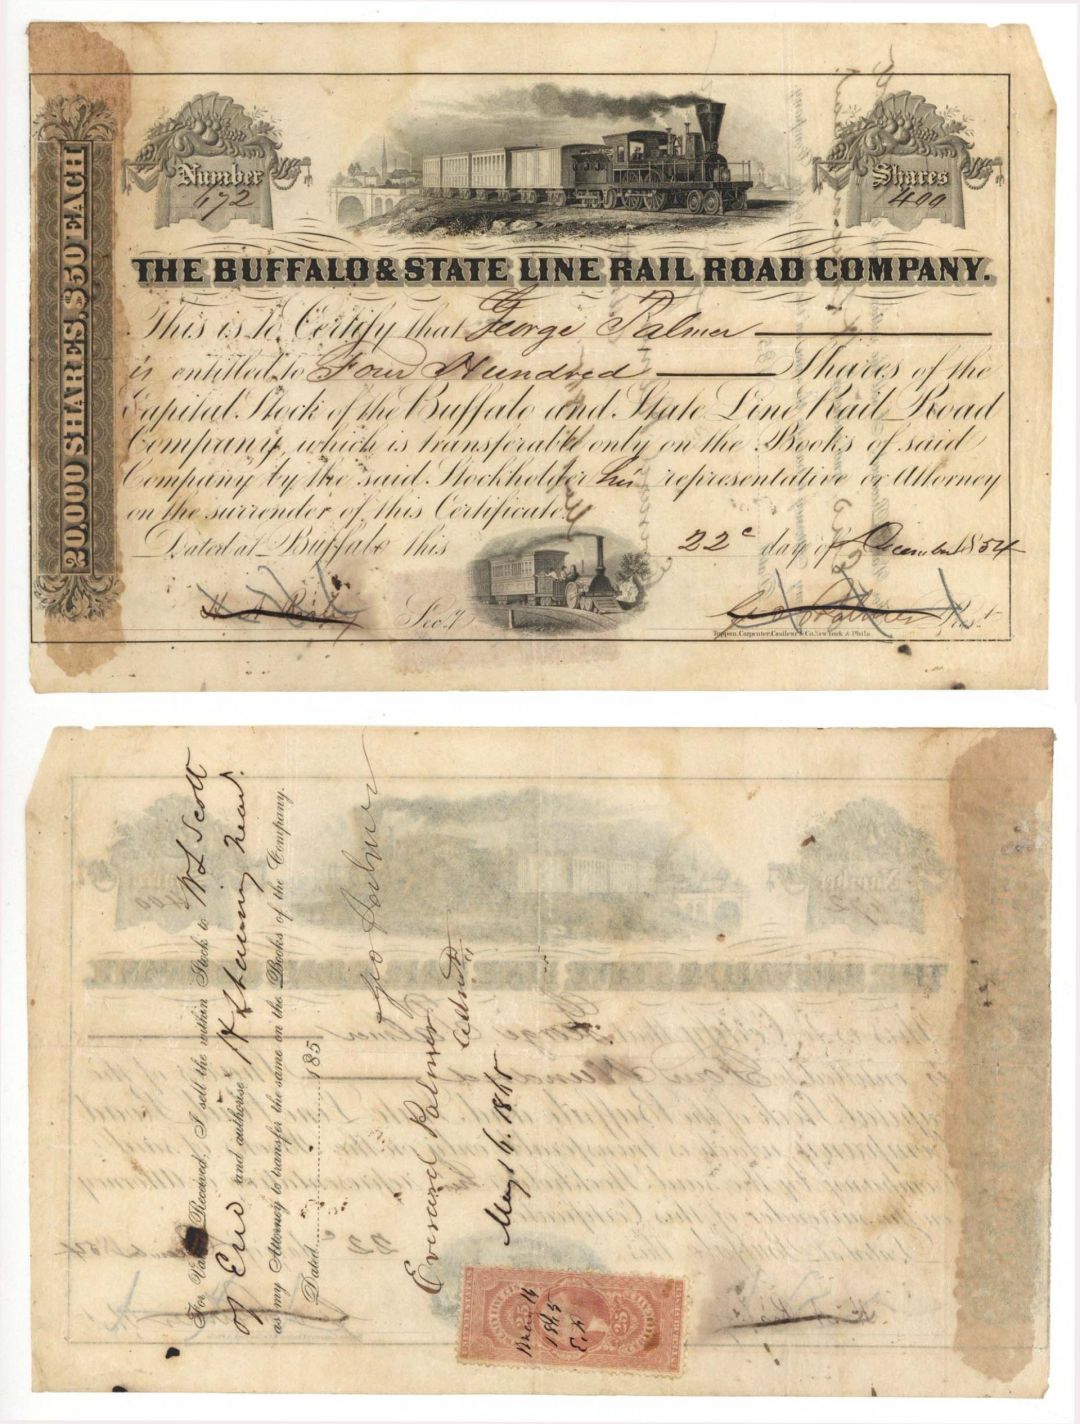 20,000 SHARES, $50 EACH
Number
672
Shares
400
THE BUFFALO & STATE LINE RAIL ROAD COMPANY.
This is to Certify that George Palmer
is entitled to Four Hundred Shares of the
Capital Stock of the Buffalo and State Line Rail Road
Company, which is transferable only on the Books of said
Company by the said Stockholder his representative or Attorney
on the surrender of this Certificate.
Dated at Buffalo this 22d day of December 1854
Secy.
Geo Palmer Prest.
Toppan, Carpenter, Casilear & Co. New York & Phila.
For Value Received, I sell the within Stock to W L Scott
of Erie and authorise
as my Attorney to transfer the same on the Books of the Company.
Dated 185
Geo Palmer
Everard Palmer
Admr
May 16. 1865
25
25
1865
E. P.